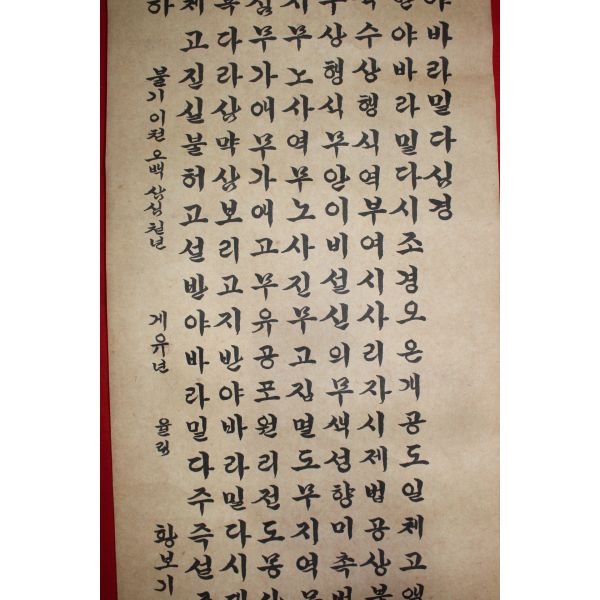 야바라밀다심경
야바라밀다시조경오온개공도일체고액
수상행식역부여시사리자시제법공상불
수상행식무안이비설신의무색성향미촉법
지무노사역무노사진무고집멸도무지역무
심무가애무가애고무유공포원리전도몽상
다라삼먁삼보리고지반야바라밀다시대
체고진실불허고설반야바라밀다주즉설주
하 불기 이천 오백 삼십 칠년 게유년 황보기